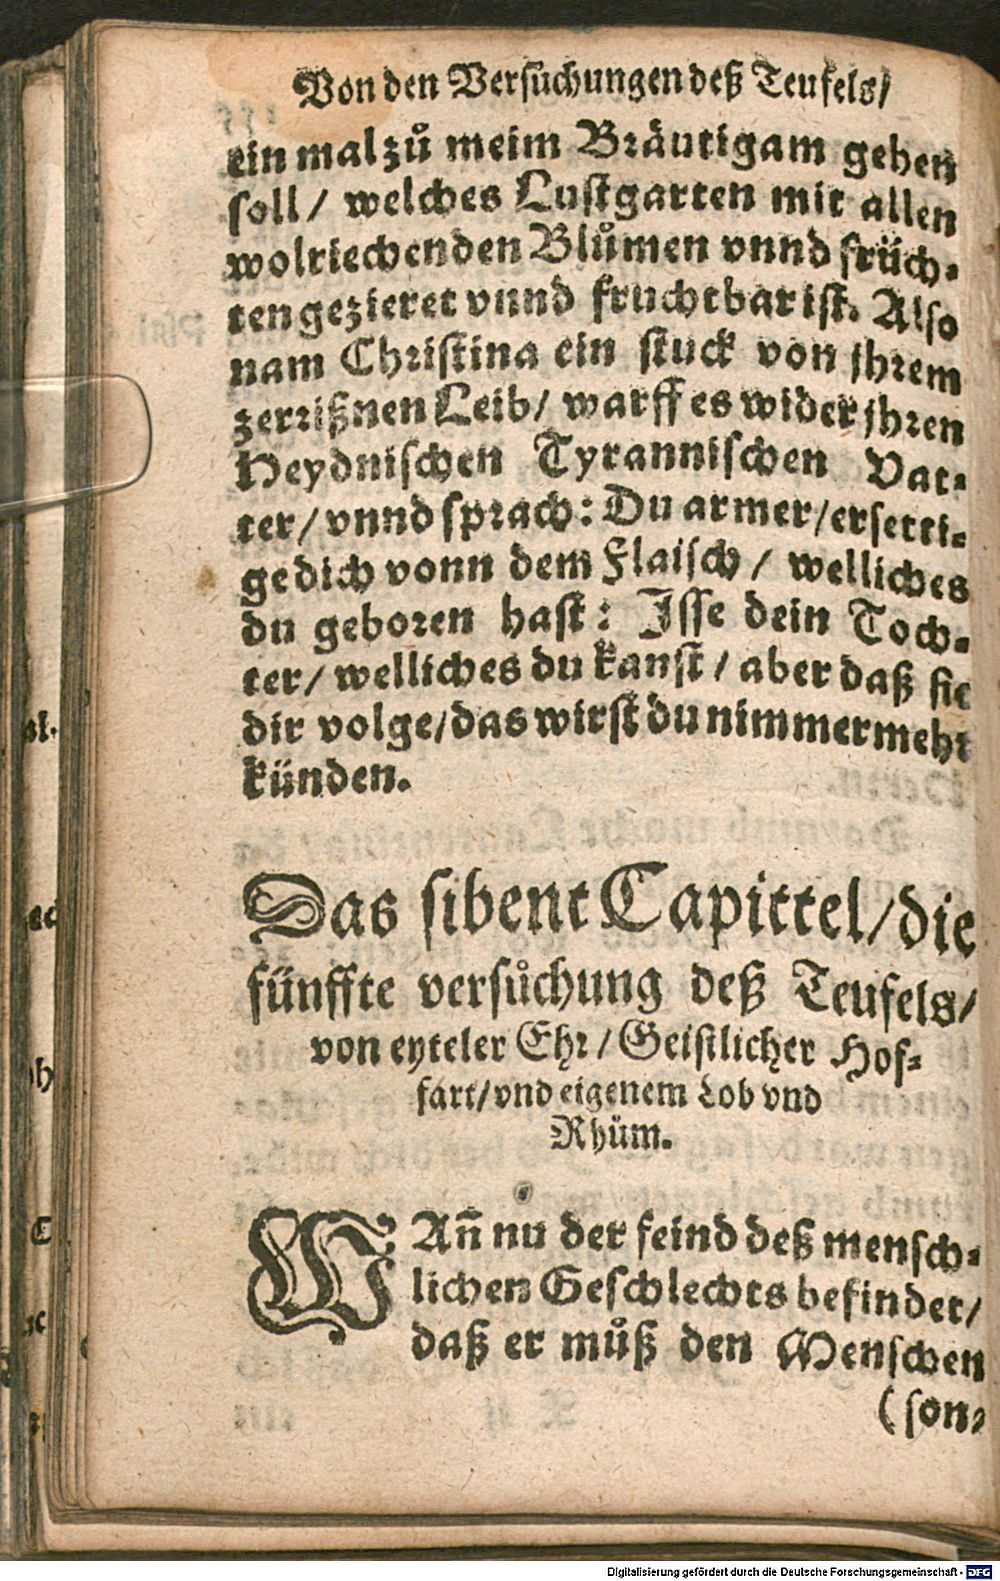 Von den Versuͤchungen deß Teufels/
ein mal zuͦ meim Bräutigam gehen
soll/ welches Lustgarten mit allen
wolriechenden Bluͦmen vnnd früch-
ten gezieret vnnd fruchtbar ist. Also
nam Christina ein stuck von jhrem
zerrißnen Leib/ warff es wider jhren
Heydnischen Tyrannischen Vat-
ter/ vnnd sprach: Du armer/ ersetti-
ge dich vonn dem Flaisch/ welliches
du geboren hast: Isse dein Toch-
ter/ welliches du kanst/ aber daß sie
dir volge/ das wirst du nimmermehr
künden.
Das sibent Capittel/ die
fünffte versuͦchung deß Teufels/
von eyteler Ehr/ Geistlicher Hof-
fart/ vnd eigenem Lob vnd
Rhuͦm.
WAñ nu der feind deß mensch-
lichen Geschlechts befindet/
daß er muͦß den Menschen
(son-
Digitalisierung gefördert durch die Deutsche Forschungsgemeinschaft - DFG